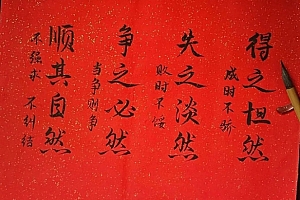 得之坦然
成时不骄
失之淡然
败时不馁
争之必然
当争则争
顺其自然
不强求 不纠结